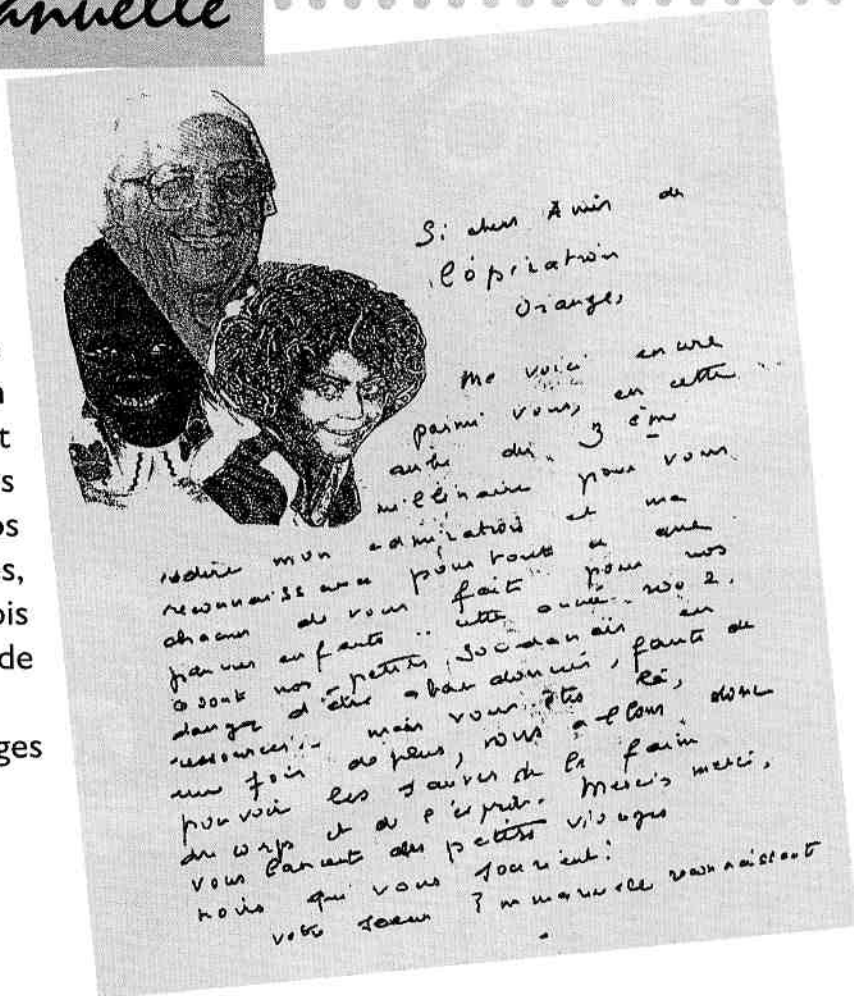 anuelle
t
s
os
s,
ois
de
ges
Si chers Amis de
l'opération
Orange,
Me voici encore
parmi vous, en cette
aube du 3ème
millénaire pour vous
redire mon admiration et ma
reconnaissance pour tout ce que
chacun de vous fait pour nos
pauvres enfants.. cette année 2002.
ce sont nos petits Soudanais en
danger d'être abandonnés, faute de
ressources.. mais vous êtes là,
une fois de plus, nous allons donc
pouvoir les sauver de la faim
du corps et de l'esprit. Merci, merci,
vous lancent des petits visages
noirs qui vous sourient!
votre Soeur Emmanuelle reconnaissante